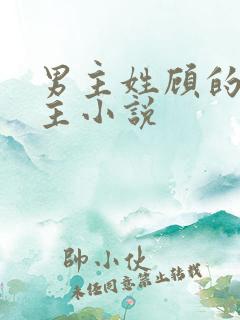 男主姓顾的
主小说
帥小伙
未经同意禁止转载